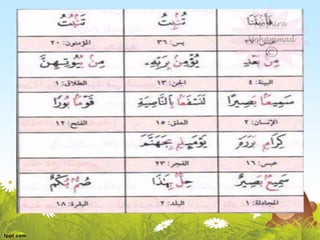 تَنۢبُتُ تُنۢبِتُ فَأَنۢبَتْنَا
المؤمنون: ٢٠ يس: ٣٦
Mohammad
©
مِنۢ بُيُوتِهِنَّ يُؤْمِنۢ بِرَبِّهِ مِنۢ بَعْدِ
الطلاق: ١ الجن: ١٣ البينة: ٤
قَوْمًۢا بُورًا لَنَسْفَعًۢا بِالنَّاصِيَةِ سَمِيعًۢا بَصِيرًا
الفتح: ١٢ العلق: ١٥ الإنسان: ٢
يَوْمَئِذٍۭ بِجَهَنَّمَ كِرَامٍۭ بَرَرَةٍ
الفجر: ٢٣ عبس: ١٦
صُمٌّۢ بُكْمٌ حِلٌّۢ بِهَٰذَا سَمِيعٌۢ بَصِيرٌ
البقرة: ١٨ البلد: ٢ المجادلة: ١
fppt.com